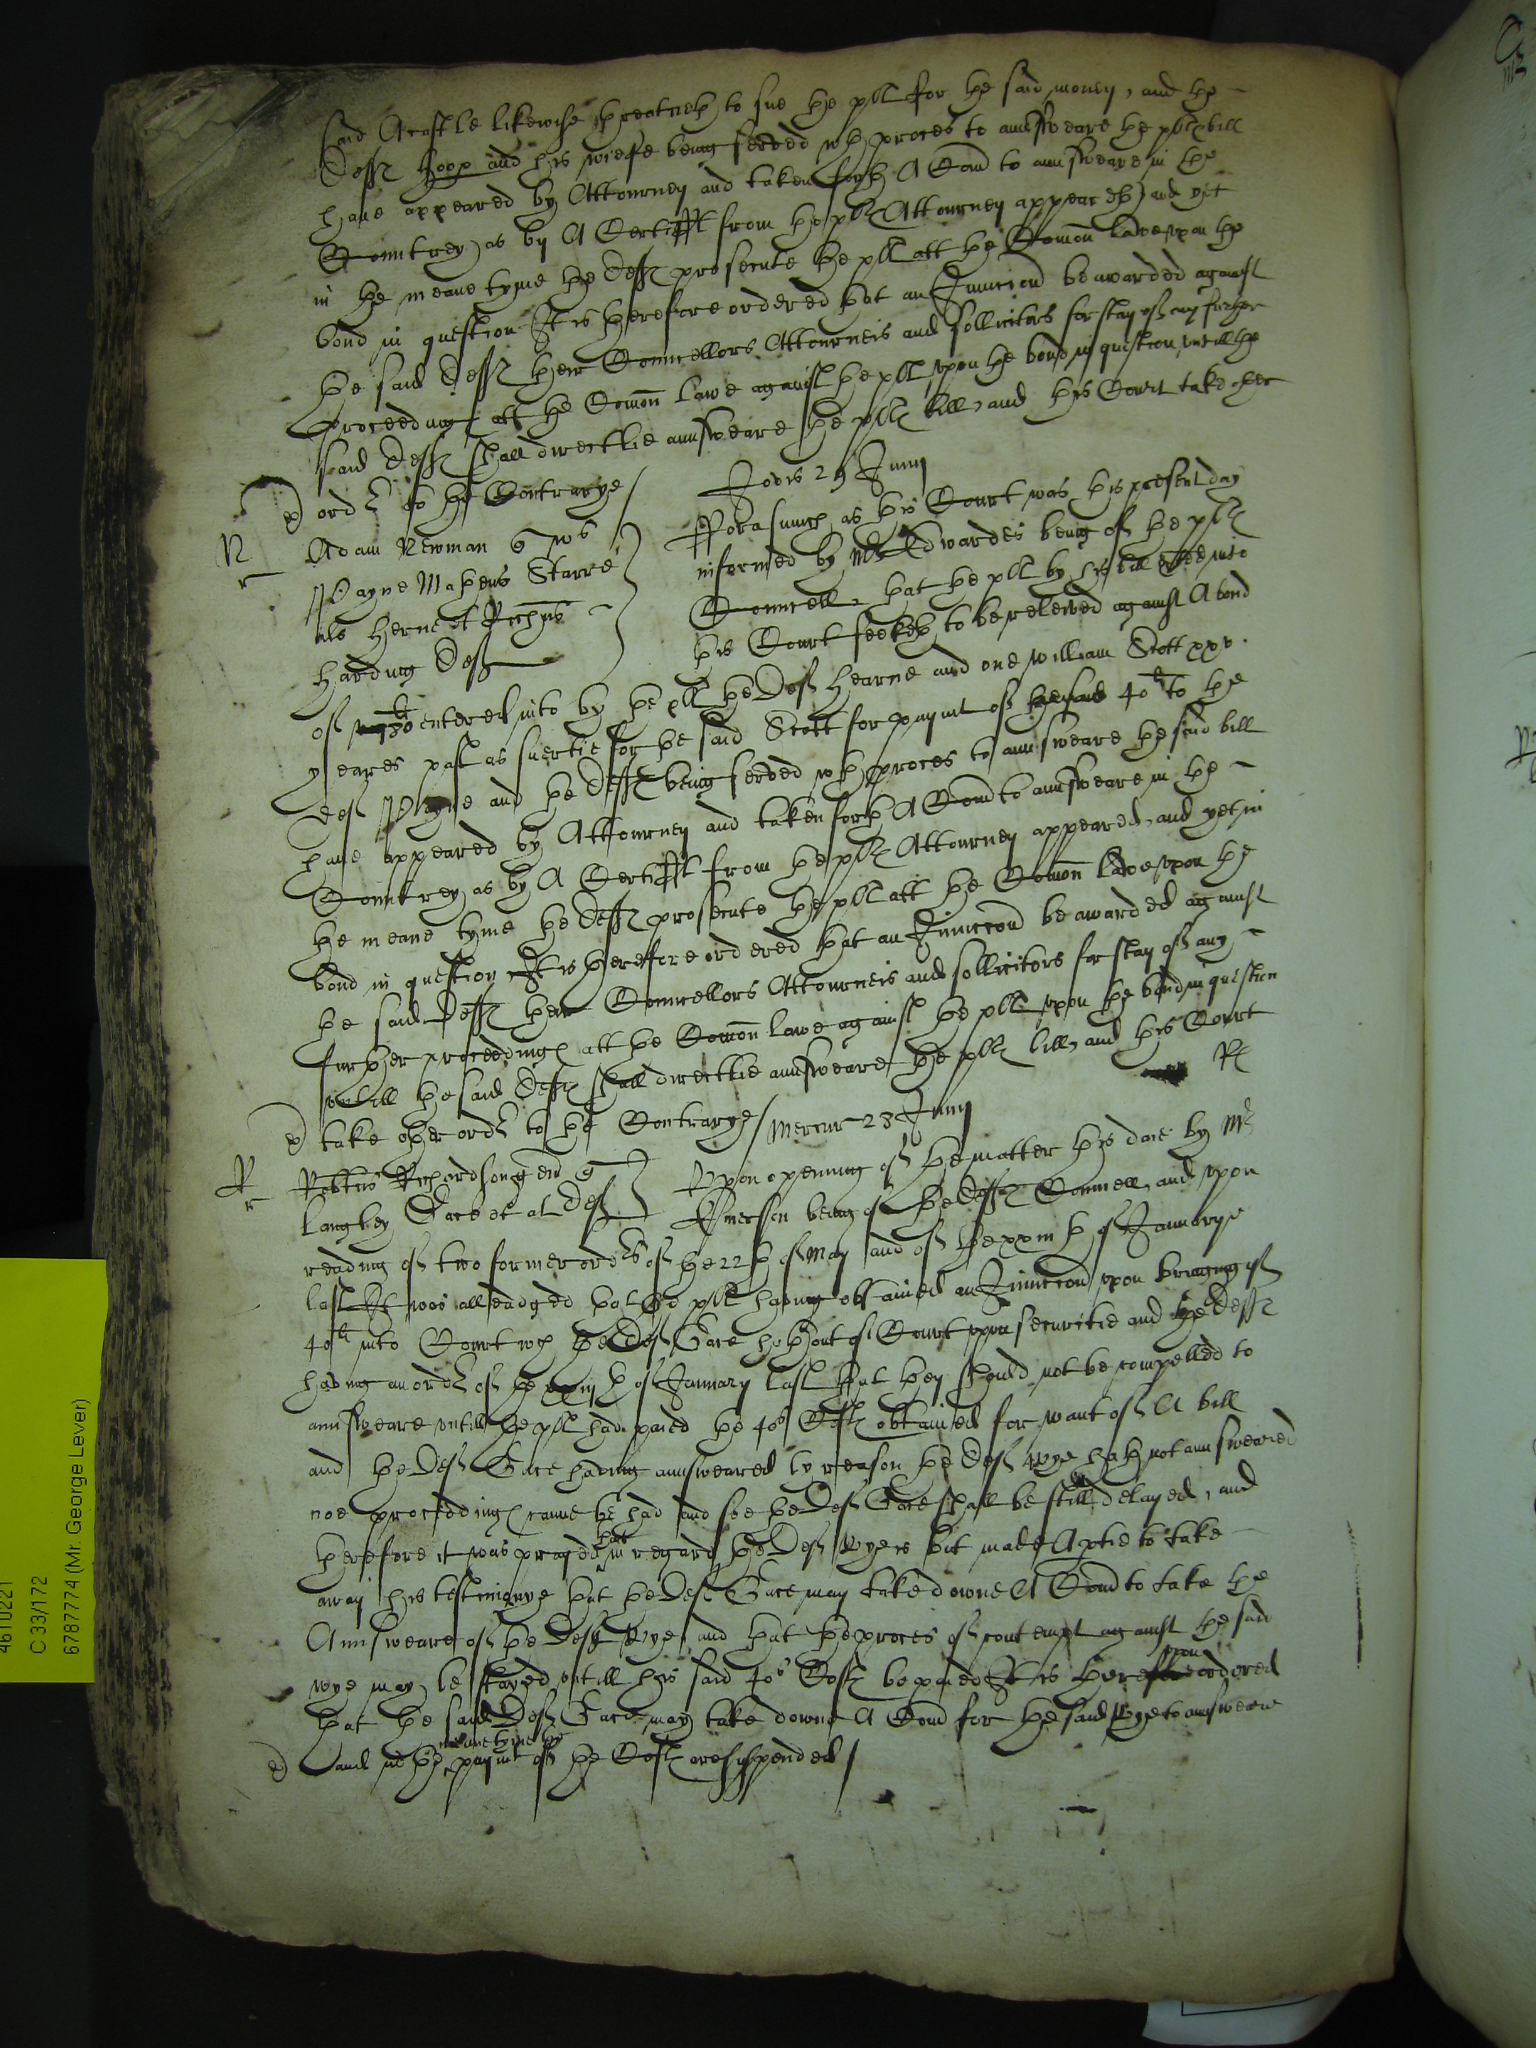 said Acastle likewise threatneth to sue the pll for the said money, and the
Defts Hoop and his wiefe being served wth proces to aunsweare the plls bill
have appeared by Attourney and taken forth A Comd to aunsweare in the
Countrey as by A Certifft from the plls Attourney appeareth, and yet
in the meane tyme the Defts prosecute the pll att the Comon lawe vpon the
bond in question It is therefore ordered that an Iniuccion be awarded against
the said Defts their Councellors Attourneis and sollicitors for stay of any further
proceedings att the Comon lawe against the pll vpon the bond in question, vntill the
said Defts shall directlie aunsweare the plls bill, and this Court take other
ordr to the Contrarye /
Jovis 24 Junij
N
Adam Newman q wm
Payne Mathews Starre
als Herne et Richus
Harding Defts
Forasmuch as this Court was this present day
informed by Mr Edwardes being of the plls
Councell, that the pll by his bill exhted into
this Court seeketh to be releived against A bond
of 80li entered into by the pll the Deft Hearne and one william Scott xxv
yeares past as suertie for the said Scott for paymt of 40li to the
Deft Payne and the Defts being served wth proces to aunsweare the said bill
have appeared by Attourney and taken forth A Comd to aunsweare in the
Countrey as by A Certifft from the plls Attourney appeared, and yet in
the meane tyme the Defts prosecute the pll att the Comon lawe vpon the
bond in question It is therefore ordered that an Iniuccion be awarded against
the said Defts their Councellors Attourneis and sollicitors for stay of any
further proceedings att the Comon lawe against the pll vpon the bond in question
vntill the said Defts shall directlie aunsweare the plls bill, and this Court
take other ordr to the Contrarye / Mercur 23 Junij
R
Robtus Richardson gen q
Langley Gace et al Def
Vpon openinng of the matter this daie by Mr
being of the Defts Councell, and vpon
reading of two former ordrs of the 22th of May and of the xxiijth of Januarye
last It was alleadged that the pll having obtained an Iniuccion vpon bringing of
40li into Court wch the Deft Gace hath out of Court vpon securitie and the Defts
having an ordr of the xxiijth of January last that they should not be compelled to
aunsweare vntill the pll had paied the 40s Costs obtained for want of A bill
and the Deft Gace having aunsweared by reason the Deft wye hath not aunsweared
noe proceedings canne be had and soe the Deft Gace shall be still delayed, and
therefore it was prayed that in regard the Deft wye is but made A ptie to take
away his testimonye that the Deft Gace may take downe A Comd to take the
Aunsweare of the Deft wye, and that the proces of contempt against the said
wye may be stayed vntill his said 40s Costs be paied It is therevpon ordered
that the said Deft Gace may take downe A Comd for the said Wye to aunsweare
and in the meane tyme the paymt of the Costs are suspended /
C 33/172
6787774 (Mr. George Lever)